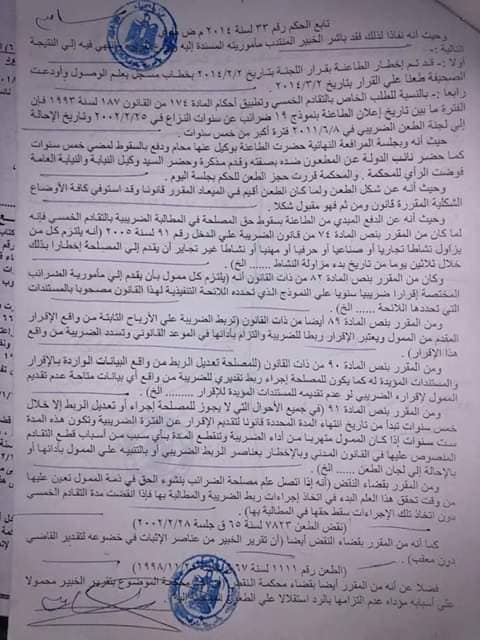 تابع الحكم رقم ٣٣ لسنة ٢٠١٤ م ض
وحيث أنه نفاذا لذلك فقد باشر الخبير المنتدب مأموريته المسندة إليه فيه إلي النتيجة
التالية :-
أولا :- قد تم إخطار الطاعنة بقرار اللجنة بتاريخ ٢٠١٤/٢/٢ بخطاب مسجل بعلم الوصول وأودعت
الصحيفة طعنا علي القرار بتاريخ ٢٠١٤/٣/٢ .
رابعا :- بالنسبة للطلب الخاص بالتقادم الخمسي وتطبيق أحكام المادة ١٧٤ من القانون ١٨٧ لسنة ١٩٩٣ فإن
الفترة ما بين تاريخ إعلان الطاعنة بنموذج ١٩ ضرائب عن سنوات النزاع في ٢٠٠٢/٢/٢٥ وتاريخ الإحالة
إلي لجنة الطعن الضريبي في ٢٠١١/٦/٨ فترة أكبر من خمس سنوات .
حيث أنه وبجلسة المرافعة النهائية حضرت الطاعنة بوكيل عنها محام ودفع بالسقوط لمضي خمس سنوات
كما حضر نائب الدولة عن المطعون ضده بصفته وقدم مذكرة وحضر السيد وكيل النيابة والنيابة العامة
فوضت الرأي للمحكمة . والمحكمة قررت حجز الطعن للحكم بجلسة اليوم .
وحيث أنه عن شكل الطعن ولما كان الطعن أقيم في الميعاد المقرر قانونا وقد استوفي كافة الأوضاع
الشكلية المقررة قانون ومن ثم فهو مقبول شكلا .
وحيث أنه عن الدفع المبدي من الطاعنة بسقوط حق المصلحة في المطالبة الضريبية بالتقادم الخمسي فإنه
لما كان من المقرر بنص المادة ٧٤ من قانون الضريبة علي الدخل رقم ٩١ لسنة ٢٠٠٥ أنه (يلتزم كل من
يزاول نشاطا تجاريا أو صناعيا أو حرفيا أو مهنيا أو نشاطا غير تجاير أن يقدم إلي المصلحة إخطارا بذلك
خلال ثلاثين يوما من تاريخ بدء مزاولة النشاط ....... الخ) .
وكان من المقرر بنص المادة ٨٢ من ذات القانون أنه (يلتزم كل ممول بأن يقدم إلي مأمورية الضرائب
المختصة إقرارا ضريبيا سنويا علي النموذج الذي تحدده اللائحة التنفيذية لهذا القانون مصحوبا بالمستندات
التي تحددها اللائحة ...... الخ) .
ومن المقرر بنص المادة ٨٩ أيضا من ذات القانون (تربط الضريبة علي الأرباح الثابتة من واقع الإقرار
المقدم من الممول ويعتبر الإقرار ربطا للضريبة والتزام بأدائها في الموعد القانوني وتسدد الضريبة من واقع
هذا الإقرار) .
ومن المقرر بنص المادة ٩٠ من ذات القانون (للمصلحة تعديل الربط من واقع البيانات الواردة بالإقرار
والمستندات المؤيدة له كما يكون للمصلحة إجراء ربط تقديري للضريبة من واقع أي بيانات متاحة عدم تقديم
الممول لإقراره الضريبي أو عدم تقديمه للمستندات المؤيدة للإقرار ........ الخ) .
ومن المقرر بنص المادة ٩١ (في جميع الأحوال التي لا يجوز للمصلحة إجراء أو تعديل الربط إلا خلال
خمس سنوات تبدأ من تاريخ انتهاء المدة المحددة قانونا لتقديم الإقرار عن الفترة الضريبية وتكون هذه المدة
ست سنوات إذا كان الممول متهربا من أداء الضريبة وتنقطع المدة بأي سبب من أسباب قطع التقادم
المنصوص عليها في القانون المدني وبالإخطار بعناصر الربط الضريبي أو بالتنبيه علي الممول بأدائها أو
بالإحالة إلي لجان الطعن ...... الخ) .
ومن المقرر بقضاء النقض (أنه إذا اتصل علم مصلحة الضرائب بنشوء الحق في ذمة الممول تعين عليها
من وقت تحقق هذا العلم البدء في اتخاذ إجراءات ربط الضريبة والمطالبة بها فإذا انقضت مدة التقادم الخمسي
دون اتخاذ تلك الإجراءات سقط حقها في المطالبة بها) .
(نقض الطعن ٧٨٢٣ لسنة ٦٥ ق جلسة ٢٠٠٢/٢/٢٨)
كما أنه من المقرر بقضاء النقض أيضا (أن تقرير الخبير من عناصر الإثبات في خضوعه لتقدير القاضي
دون معقب) .
(الطعن رقم ١١١١ لسنة ٦٧ ق ١٩٩٨/١١/٢)
فضلا عن أنه من المقرر أيضا بقضاء محكمة النقض الموضوع بتقرير الخبير محمولا
علي أسبابه مؤداه عدم التزامها بالرد استقلالا علي الطعن